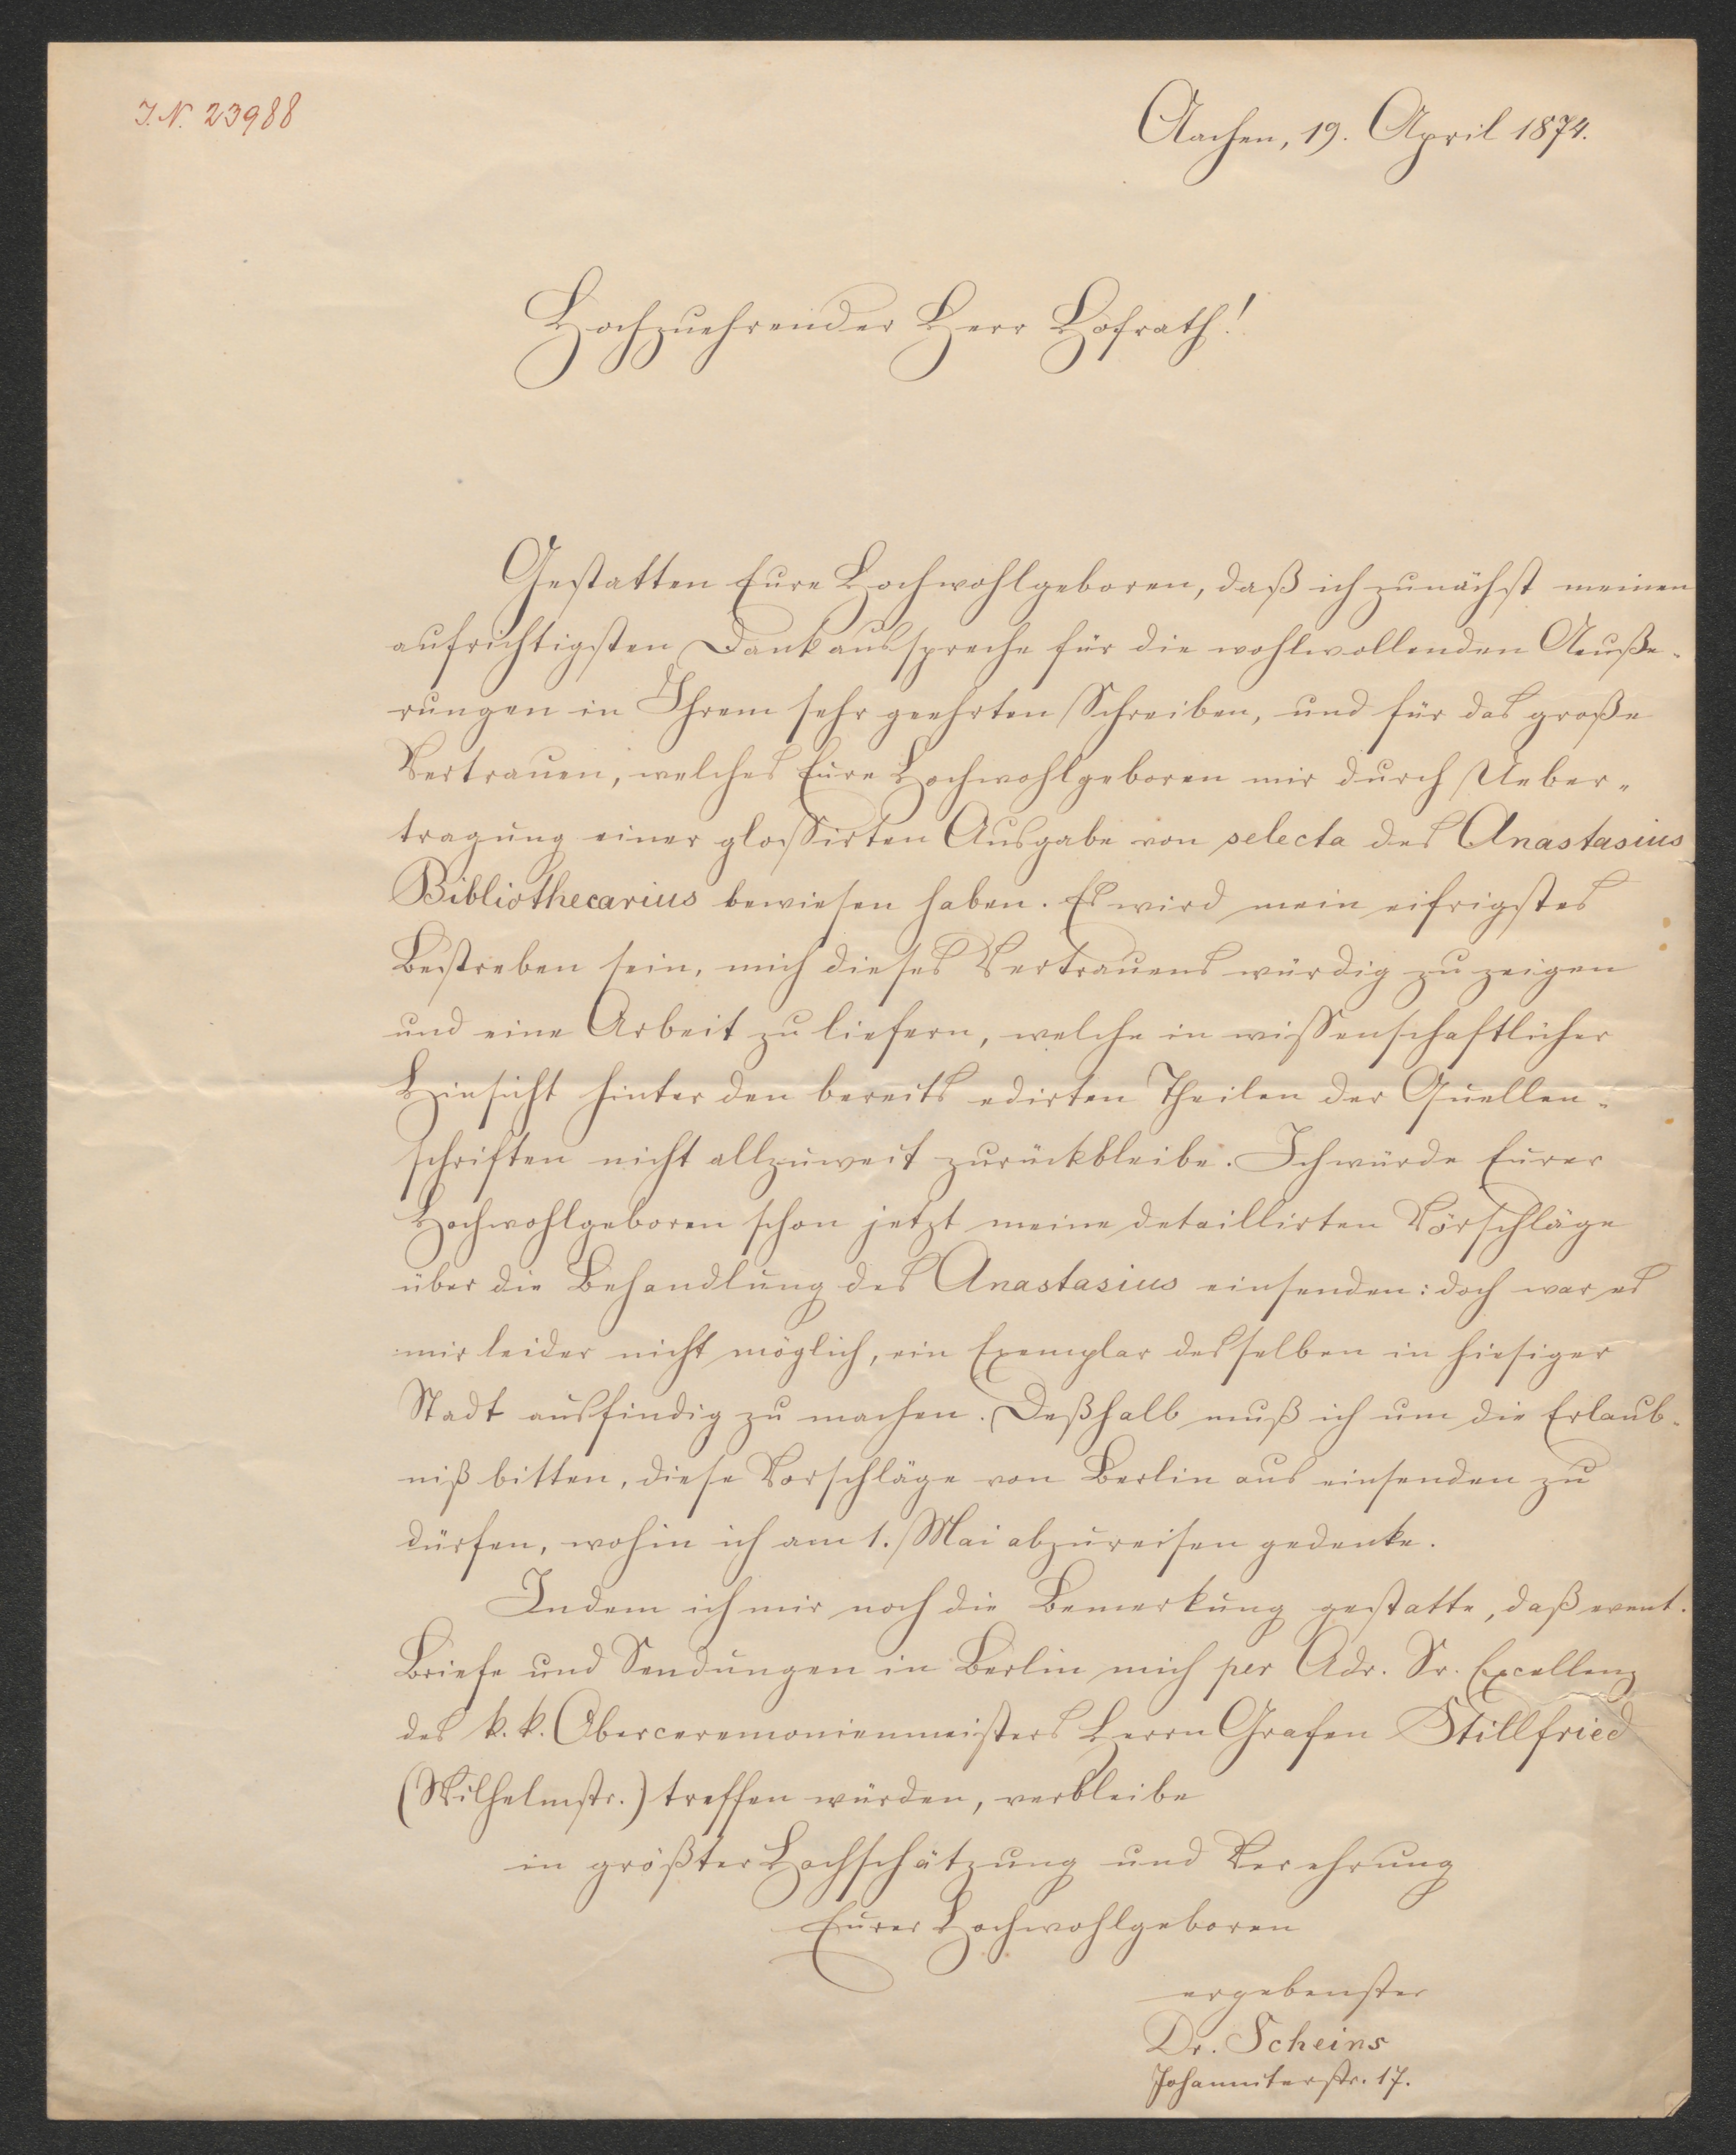 I.N. 23988
Aachen, 19. April 1874.
Hochzuehrender Herr Hofrath!
Gestatten Eure Hochwohlgeboren, daß ich zunächst meinen
aufrichtigsten Dank ausspreche für die wohlwollenden Aeuße-
rungen in Ihrem sehr geehrten Schreiben, und für das große
Vertrauen, welches Eure Hochwohlgeboren mir durch Ueber-
tragung einer glossirten Ausgabe von selecta des Anastasius
Bibliothecarius bewiesen haben. Es wird mein eifrigstes
Bestreben sein, mich dieses Vertrauens würdig zu zeigen
und eine Arbeit zu liefern, welche in wissenschaftlicher
Hinsicht hinter den bereits edirten Theilen der Quellen-
schriften nicht allzuweit zurückbleibe. Ich würde Eurer
Hochwohlgeboren schon jetzt meine detaillirten Vorschläge
über die Behandlung des Anastasius einsenden: doch war es
mir leider nicht möglich, ein Exemplar desselben in hiesiger
Stadt ausfindig zu machen. Deßhalb muß ich um die Erlaub-
niß bitten, diese Vorschläge von Berlin aus einsenden zu
dürfen, wohin ich am 1. Mai abzureisen gedenke.
Indem ich mir noch die Bemerkung gestatte, daß event.
Briefe und Sendungen in Berlin mich per Adr. Sr. Excellenz
des k. k. Oberceremonienmeisters Herrn Grafen Stillfried
(Wilhelmstr.) treffen würden, verbleibe
in größter Hochschätzung und Verehrung
Eurer Hochwohlgeboren
ergebenster
Dr. Scheins
Johanniterstr. 17.